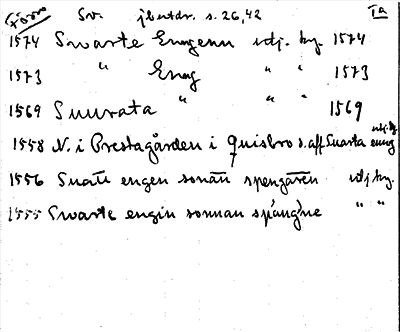 Förr Sv. jbertdr. s. 26, 42 Ia
1574 Swarte Enngenn utj. by. 1574
1573 " Enng " " 1573
1569 Suurata " " " 1569
1558 N. i Prestagården i Quisbro s. aff Suarta enng utj. by
1556 Suate engen sonān spengāren utj. by.
1555 Swarte engin sonnan spángne " "